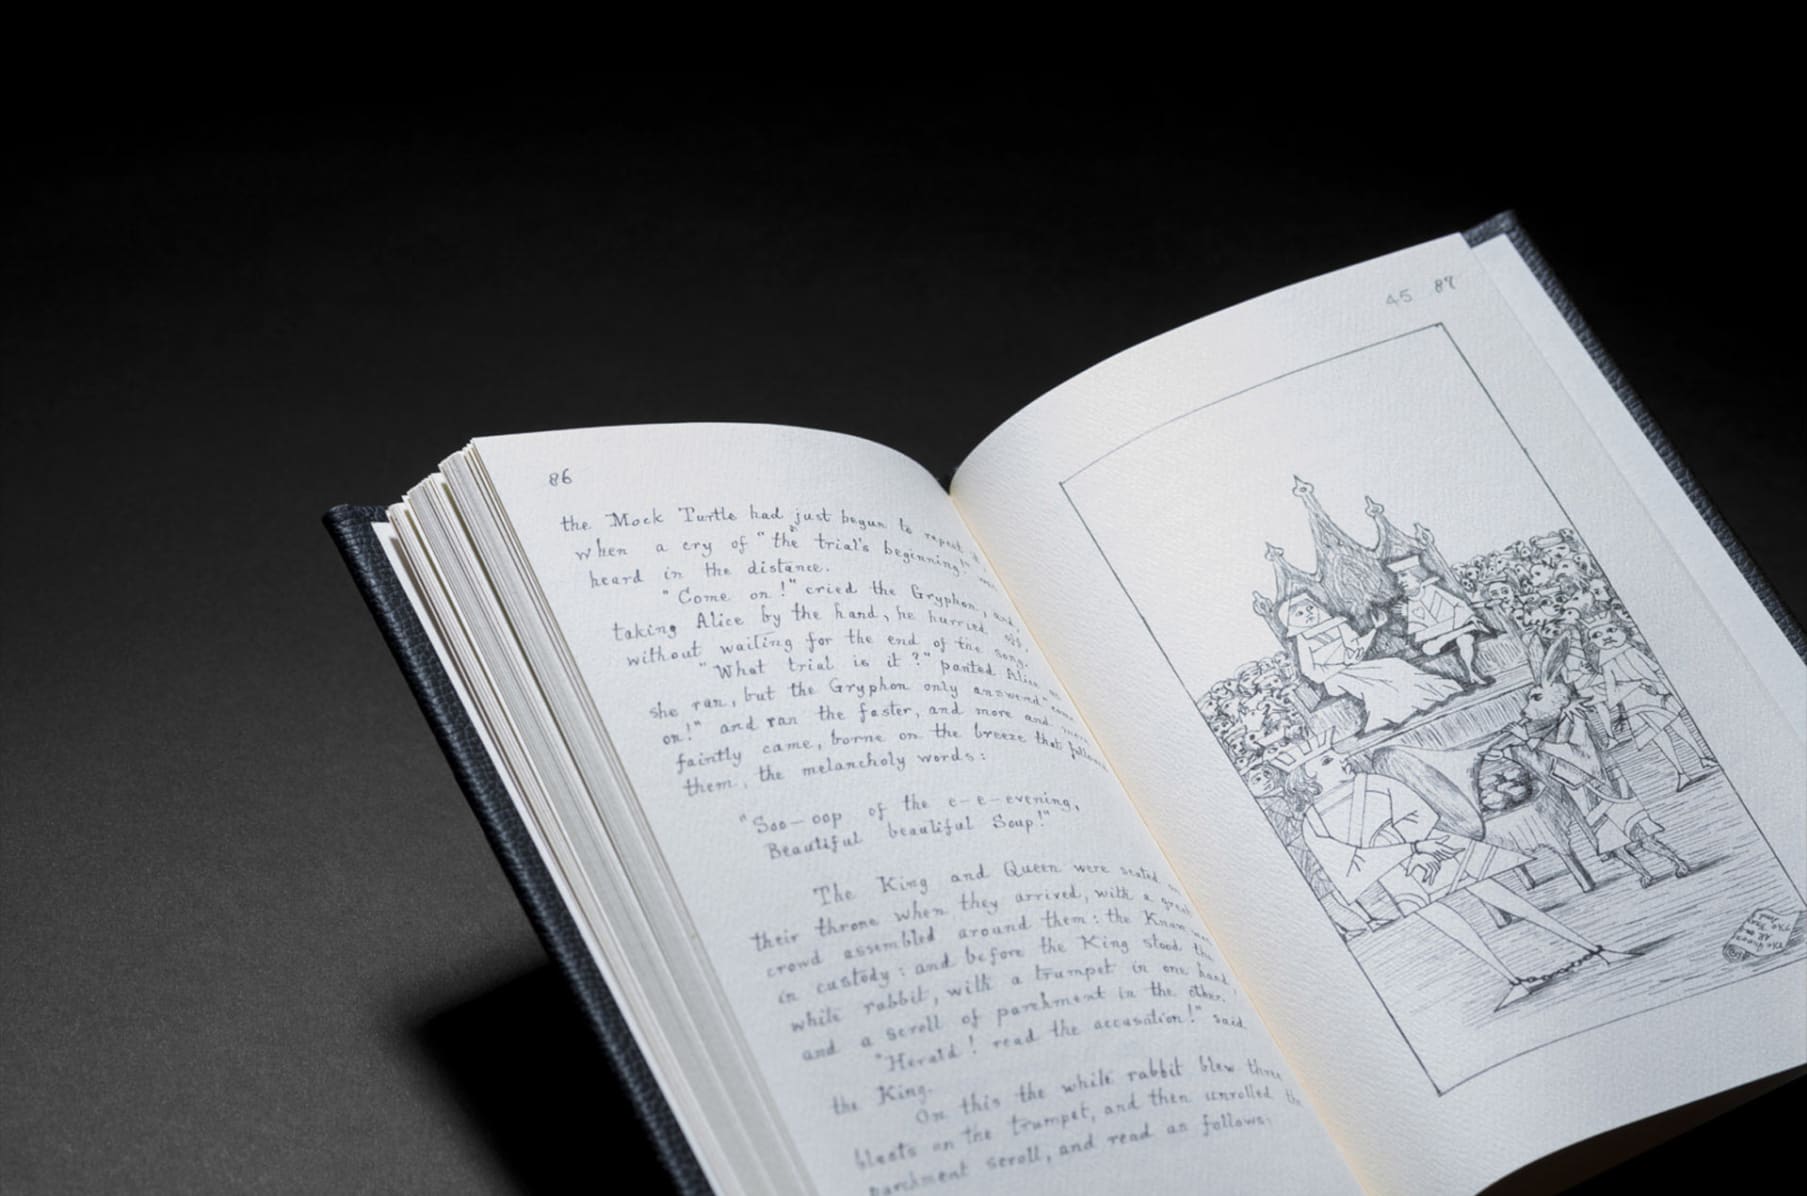 86
the Mock Turtle had just begun to repeat it
when a cry of "the trial's beginning!" was
heard in the distance.
"Come on!" cried the Gryphon, and,
taking Alice by the hand, he hurried off,
without waiting for the end of the song.
"What trial is it?" panted Alice as
she ran, but the Gryphon only answered "come
on!" and ran the faster, and more and more
faintly came, borne on the breeze that followed
them, the melancholy words:
"Soo-oop of the e-e-evening,
Beautiful beautiful Soup!"
The King and Queen were seated on
their throne when they arrived, with a great
crowd assembled around them: the Knave was
in custody: and before the King stood the
white rabbit, with a trumpet in one hand,
and a scroll of parchment in the other.
"Herald! read the accusation!" said
the King.
On this the white rabbit blew three
blasts on the trumpet, and then unrolled the
parchment scroll, and read as follows:
45 87